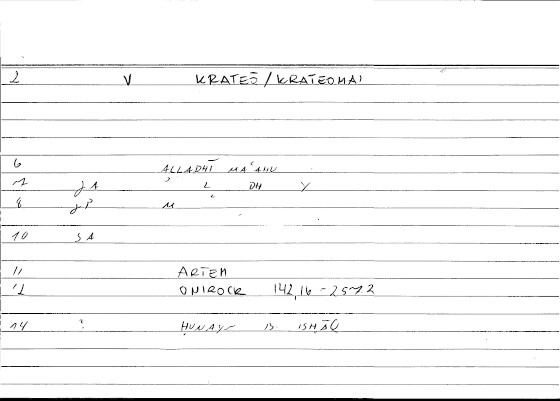 2 V KRATEŌ/KRATEOMAI
6 ALLADHĪ MAʿAHU
7 jA ʾ L DH Y
8 jP M ʿ
10 SA
11 ARTEM
12 ONIROCR 142,16 - 25-7.2
14 : ḤUNAYN B. ISḤĀQ